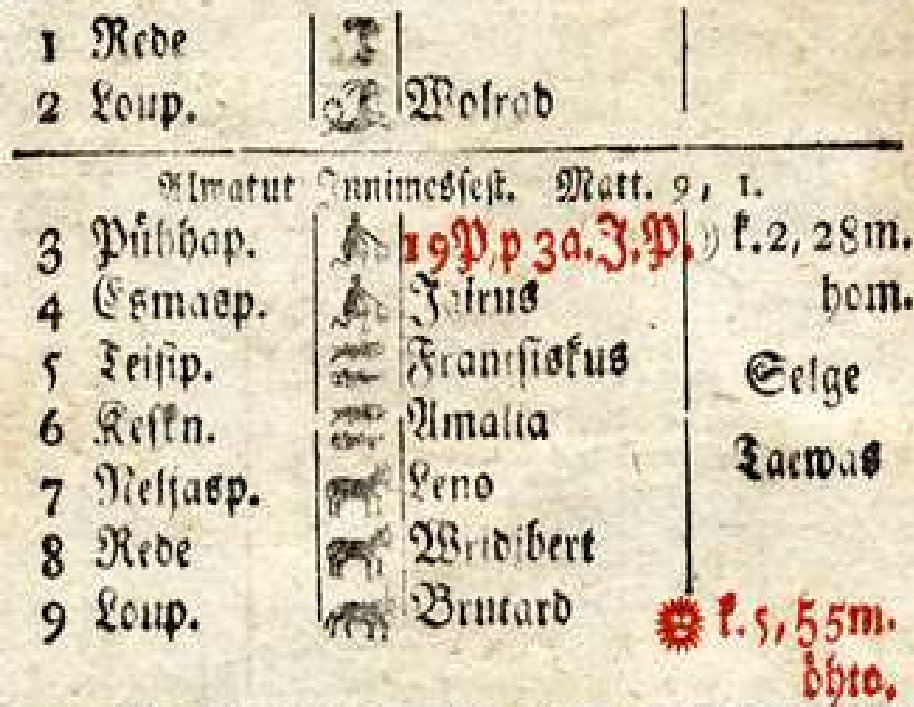 1 Rede
2 Loup. Wolrad
Almatut Innimessest. Matt. 9, 1.
3 Pühhap. 19 P, p 3a. J. P. ☽ k. 2, 28m.
4 Esmasp. Jairus hom.
5 Teisip. Frantsiskus Selge
6 Keskn. Amalia
7 Neljasp. Leno Taewas
8 Rede Wridibert
9 Loup. Brutard k. 5, 55m.
öhto.